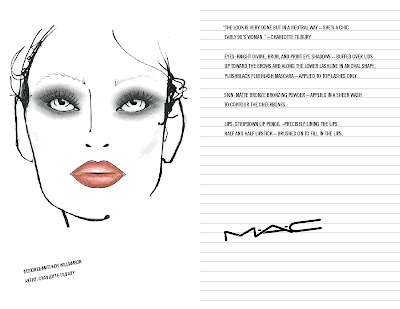 "THE LOOK IS VERY DONE BUT IN A NEUTRAL WAY – SHE'S A CHIC
EARLY 90'S WOMAN." – CHARLOTTE TILBURY
EYES: KNIGHT DIVINE, BRUN, AND PRINT EYE SHADOWS – BUFFED OVER LIDS
UP TOWARD THE BROWS AND ALONG THE LOWER LASHLINE IN AN OVAL SHAPE.
PLUSHBLACK PLUSHLASH MASCARA – APPLIED TO TOP LASHES ONLY.
SKIN: MATTE BRONZE BRONZING POWDER – APPLIED IN A SHEER WASH
TO CONTOUR THE CHEEKBONES.
LIPS: STRIPDOWN LIP PENCIL – PRECISELY LINING THE LIPS.
HALF AND HALF LIPSTICK – BRUSHED ON TO FILL IN THE LIPS.
M·A·C
DESIGNER: MATTHEW WILLIAMSON
ARTIST: CHARLOTTE TILBURY